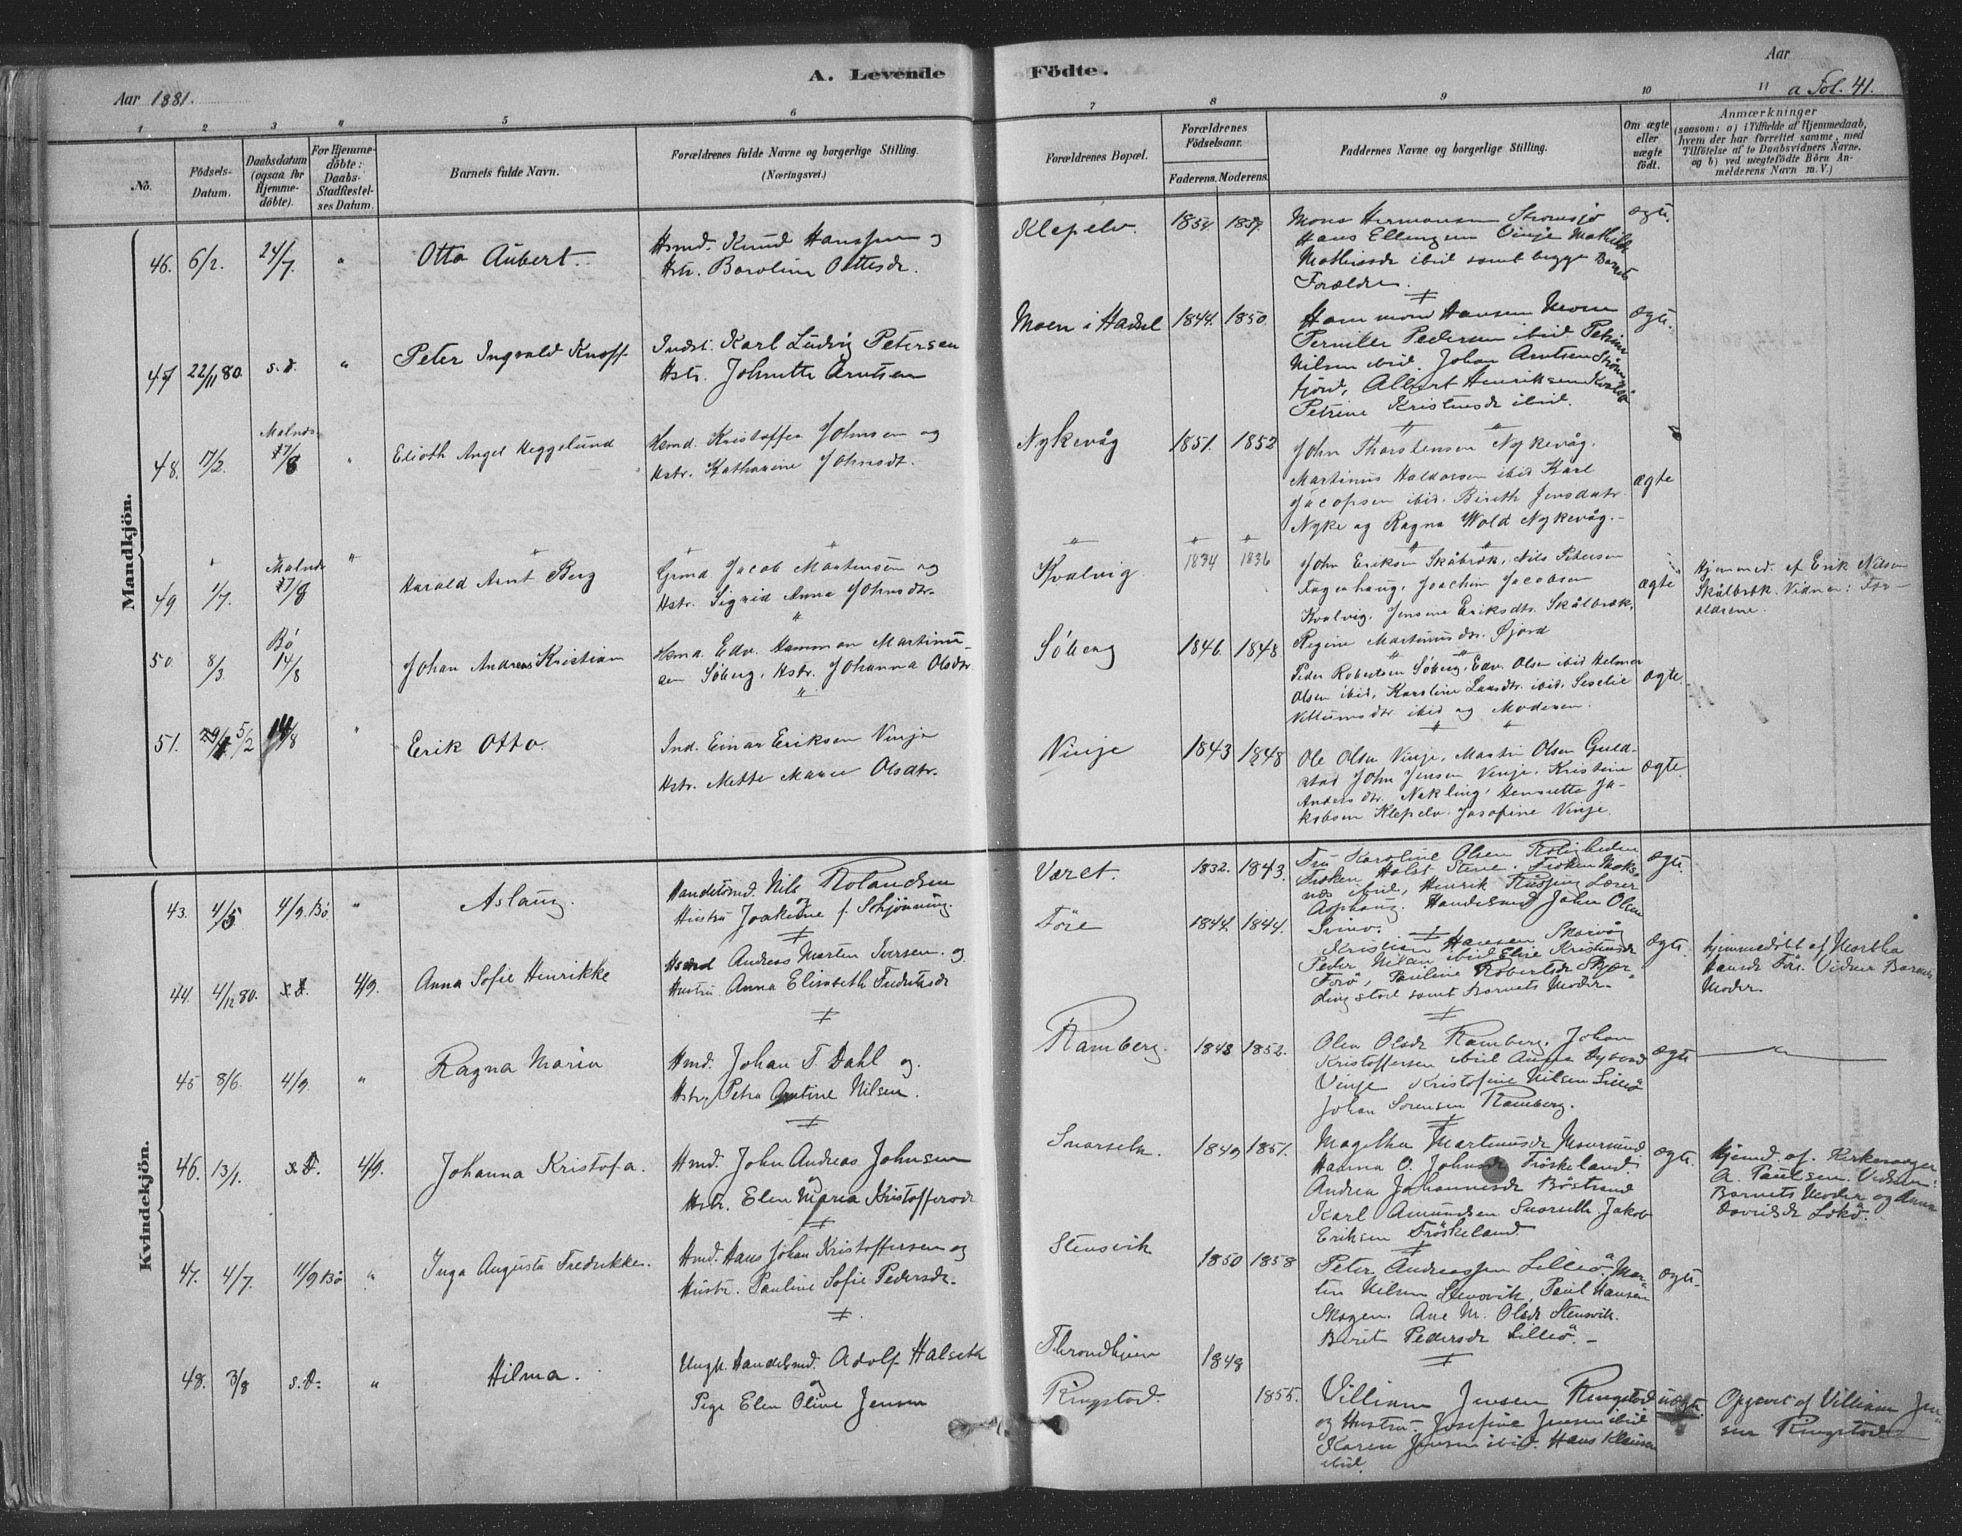 A. Levende Födte.
Aar 1881.
Aar
a Fol. 41.
1 2 3 4 5 6 7 8 9 10 11
No.
Födsels-Datum.
Daabsdatum (ogsaa for Hjemme-döbte).
For Hjemme-döbte: Daabs-Stadfæstel-ses Datum.
Barnets fulde Navn.
Forældrenes fulde Navne og borgerlige Stilling.
(Næringsvei.)
Forældrenes Bopæl.
Forældrenes Födselsaar.
Faderens. Moderens.
Faddernes Navne og borgerlige Stilling.
Om ægte eller uægte födt.
Anmærkninger
(saasom: a) i Tilfælde af Hjemmedaab, hvem der har forrettet samme, med Tilföielse af to Daabsvidners Navne, og b) ved uægtefödte Börn Anmelderens Navn m. V.)
Mandkjön.
46. 6/2. 24/7. " Otto Aubert. Hsmd. Knud Hanssen og
Hstr. Baroline Ottesdr.
Klepelv. 1854. 1857.
Mons Hermansen Stromsjö
Hans Ellingsen Vinje Mathilde
Mathisdr ibid samt begge Barnets
Forældre.
ægte.
47 22/11 80. s.d. " Peter Ingvald Knoff Indst. Karl Ludvig Petersen
Hstr. Johnette Arntsen
Moen i Hadsel 1844. 1850
Hammon Hansen Moen
Pernille Pedersen ibid Petrine
Nilsen ibid. Johan Arntsen
fjord, Albert Henriksen
Petrine Kristensdr ibid.
ægte.
48. 17/2. Malnes 27/8 " Elioth Angel Heggelund Hsmd. Kristoffer Johnsen og
Hstr. Katharine Johnsdt.
Nykevåg 1851. 1852
John Thorstensen Nykevåg.
Martinus Haldorsen ibid Karl
Jacopsen ibid. Bireth Jensdatr.
Nyke og Ragna Wold Nykevåg.
ægte
49 1/7. Malnes 27/8 " Harald Arnt Berg Grmd. Jacob Mortensen og
Hstr. Sigrid Anna Johnsdtr.
Kvalvig. 1834 1836
John Eriksen Skålbrek, Nils Petersen
Fagerhaug, Joachim Jacobsen
Kvalvig. Jensine Eriksdtr. Skålbrek.
Regine Martinusdtr. Gjord
ægte
Hjemmed. af Erik Nilsen
Skålbrek. Vidner: For-
ældrene.
50 8/3. Bö 14/8 Johan Andreas Kristian Hsmd. Edv. Hammon Martinu-
sen Söberg, Hstr. Johanna Olsdtr.
Söberg 1846 1848
Peder Robertsen Söberg, Edv. Olsen ibid Helmer
Olsen ibid, Karoline Larsdtr. ibid. Seselie
Villumsdtr ibid og Moderen.
ægte.
51. 5/2 14/8 " Erik Otto. Ind. Einar Eriksen Vinje
Hstr. Mette Marie Olsdtr.
Vinje 1843 1848
Ole Olsen Vinje, Martin Olsen Guld-
stad John Jensen Vinje, Kristine
Andersdtr. Nykling, Henriette Ja-
kobsen Klepelv. Josefine Vinje.
ægte.
Kvindekjön.
43. 4/5 4/9. Bö " Aslaug. Handelsmd. Nils Rolandsen
og Hustru Joakime f. Schjönning.
Været. 1832. 1843.
Fru Karoline Olsen Roligheden
Fröken Holst Steine. Fröken
ibid, Henrik Lærer
Asphaug. Handelsmd John Olsen
Svinö.
ægte.
44. 4/12 80. s.d. 4/9. Anna Sofie Henrikke Hsmd Andreas Marten Iversen. og
Hustru Anna Elisabeth Fredriksdr
Före 1844. 1844.
Kristian Hansen Skarvåg
Peder Nilsen ibid Elise Kristensdr
Forö, Pauline Robertsdr Skjær-
dingstad samt Barnets Moder.
ægte.
Hjemmedöbt af Martha
Hansdr Före. Vidner Barnets
Moder.
45 8/6. 4/9. " Ragna Maria Hmd. Johan T. Dahl og.
Hstr. Petra Antine Nilsen.
Ramberg. 1848 1852.
Olea Olsdr Ramberg. Johan
Kristoffersen ibid
Vinje Kristofine Nilsen Lilleö
Johan Sorensen Ramberg.
ægte
46. 13/1. s.d. 4/9. Johanna Kristofa. Hmd. John Andreas Johnsen
og Hstr. Elen Maria Kristoffersdr
Snarseth. 1849 1851.
Magitha Martinusdr Maursund
Hanna O. Johnsdr Fröskeland.
Andrea Johannesdr Böstrand
Karl Amundsen Snarseth. Jakob
Eriksen Fröskeland.
ægte.
Hjemd. af. Kirkesanger
A. Paulsen. Vidner:
Barnets Moder og Anna
Davidsdr Lokö.
47. 4/7. 11/9 Bö " Inga Augusta Fredrikke. Hmd. Hans Johan Kristoffersen og
Hustr. Pauline Sofie Pedersdr.
Stensvik 1850 1858
Peter Andreassen Lilleö, Mar-
tin Nilsen Stensvik, Paul Hansen
Skogen. Ane M. Olsdr Stensvik.
Berit Pedersdr Lilleö.
ægte.
48. 3/8 s.d. " Hilma. Ungk. Handelsmd. Adolf Halseth
og Pige Elen Olive Jensen
Throndhjem 1848
Ringstad. 1855.
Villiam Jensen Ringstad
og Hustru Josefine Jensen ibid
Karen Jensen ibid. Hans Klausen
ibid.
uægte.
Opgivet af Villiam Jen-
sen Ringstad